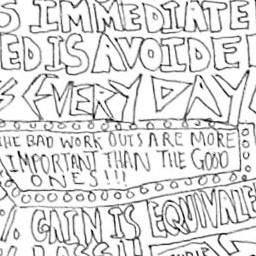 S IMMEDIATE
ED IS AVOIDE
S EVERY DAY
HE BAD WORK OUTS ARE MORE
IMPORTANT THAN THE GOOD
ONES!!!
% GAIN IS EQUIVALE
% LOSS!!